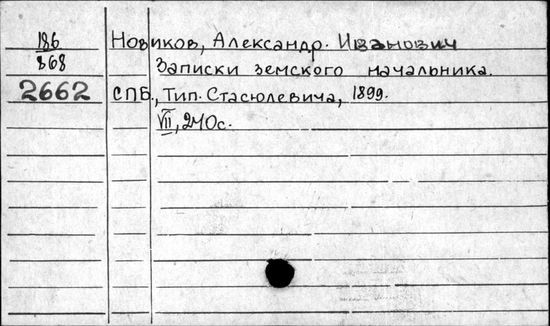 186 Новиков, Александр Иванович
868 Записки земского начальника.
2662 СПБ., Тип. Стасюлевича, 1899.
VII, 240с.